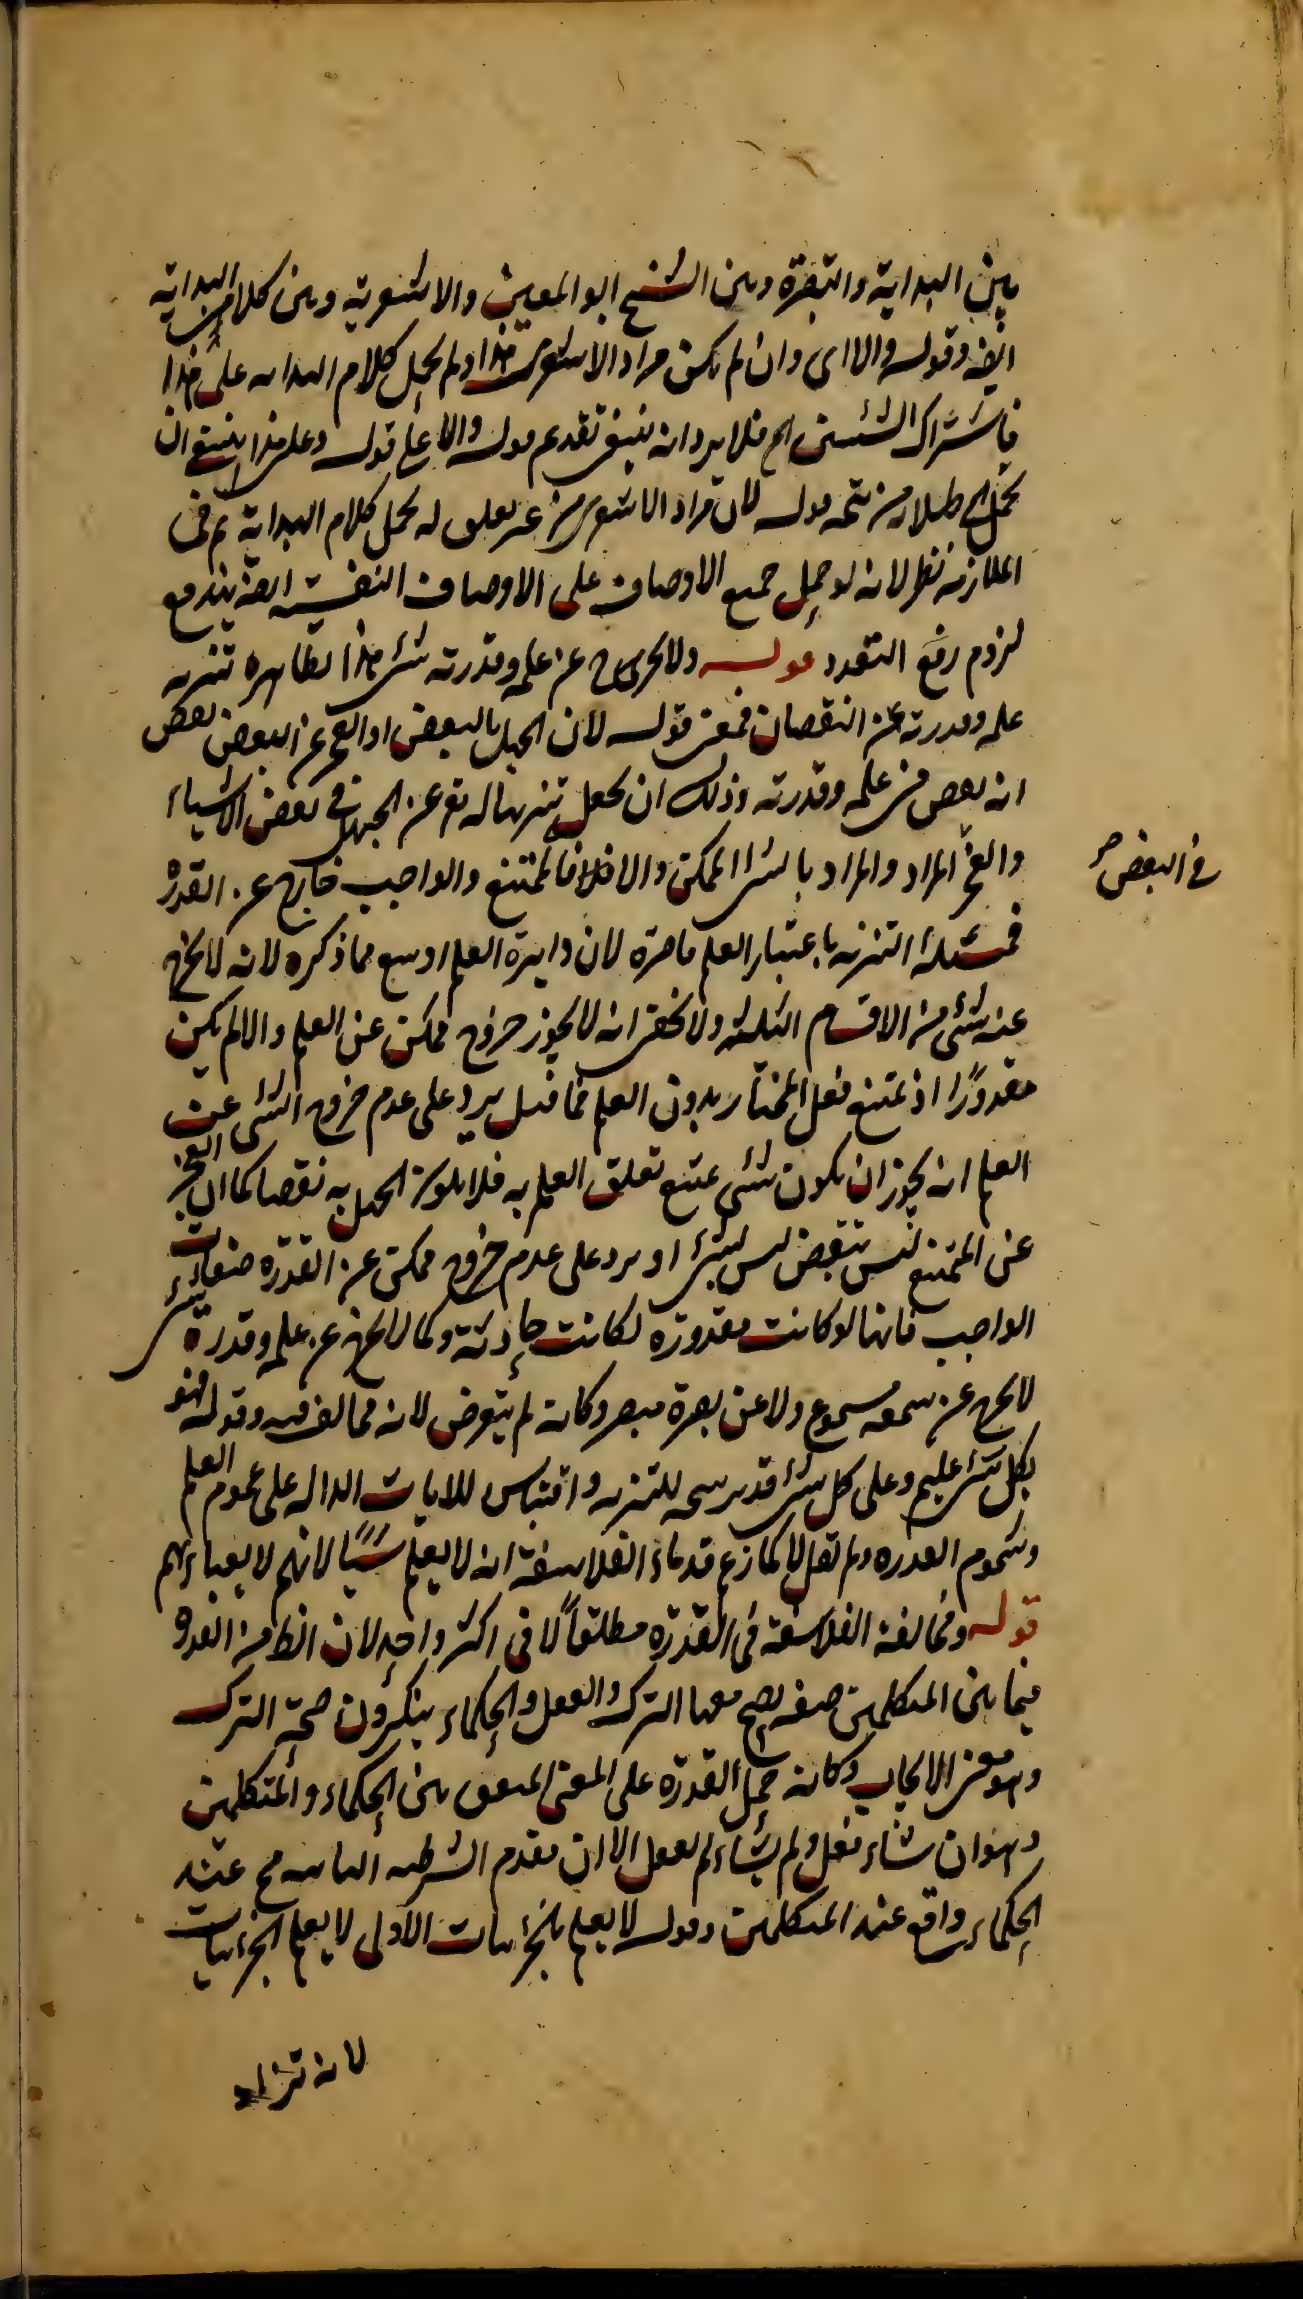 بين البداية والتبصرة وبين الشيخ ابو المعين والاشعرية وبين كلام البداية
ايضه وقوله والا اى وان لم يكن مراد الاشعرى هذا ولم يحمل كلام البدايه على هذا
فاشتراك الشيئين الخ فلا يرد انه ينبغى تقديم قوله والا على قوله وعلى هذا ينبغى ان
يحمل من تتمه قوله لان مراد الاشعرى من غير تعلق له بحمل كلام البداية ثم فى
الملازمه نظر لانه لو حمل جميع الاوصاف على الاوصاف النفسيه ايضه يندفع
لزوم رفع التعدد قوله ولا يخرج عن علمه وقدرته شئ هذا بظاهره تنزيه
علمه وقدرته عن النقصان فمعنى قوله لان الجهل بالبعض او العجز عن البعض نقص
انه نقص فى علمه وقدرته وذلك ان تجعل تنزيها له تع عن الجهل فى بعض الاشياء
والعجز المراد والمراد بالشئ الممكن والا فالممتنع والواجب خارج عن القدرة
فى البعض صح
فمسئلة التنزيه باعتبار العلم قاصرة لان دايرة العلم اوسع مما ذكره لانه لا يخرج
عنه شئ من الاقسام الثلثه ولا يخفى انه لا يجوز خروج ممكن عن العلم والا لم يكن
مقدورًا اذ يمتنع فعل المختار بدون العلم فما قيل يرد على عدم خروج الشئ عن
العلم انه يجوز ان يكون شئ يمتنع تعلق العلم به فلا يكون الجهل به نقصا كما ان العجز
عن الممتنع ليس بنقص ليس بشئ او يرد على عدم خروج ممكن عن القدرة صفات
الواجب فانها لو كانت مقدورة لكانت حادثة وكما لا يخرج عن علمه وقدرته شئ
لا يخرج عن سمعه مسموع ولا عن بصره مبصر وكانه لم يتعرض لانه مخالف فيه وقوله فهو
بكل شئ عليم وعلى كل شئ قدير نتيجه للتنزيه واقتباس للايات الداله على عموم العلم
وشموم القدره ولم يقل لا كما زعم قدماء الفلاسفة انه لا يعلم شيئًا لانهم لا يعباء بهم
قوله ومخالفة الفلاسفة فى القدرة مطلقًا لا فى اكثر واحد لان الظ من القدرة
فيما بين المتكلمين صفه يصح معها الترك والفعل والحكماء ينكرون صحة الترك
وهو معنى الايجاب وكانه حمل القدرة على المعنى المتفق بين الحكماء والمتكلمين
وهو ان شاء فعل ولم يشاء لم يفعل الا ان مقدم الشرطيه الثانيه مح عند
الحكماء واقع عند المتكلمين وقوله لا يعلم بالجزئيات الاولى لا يعلم الجزئيات